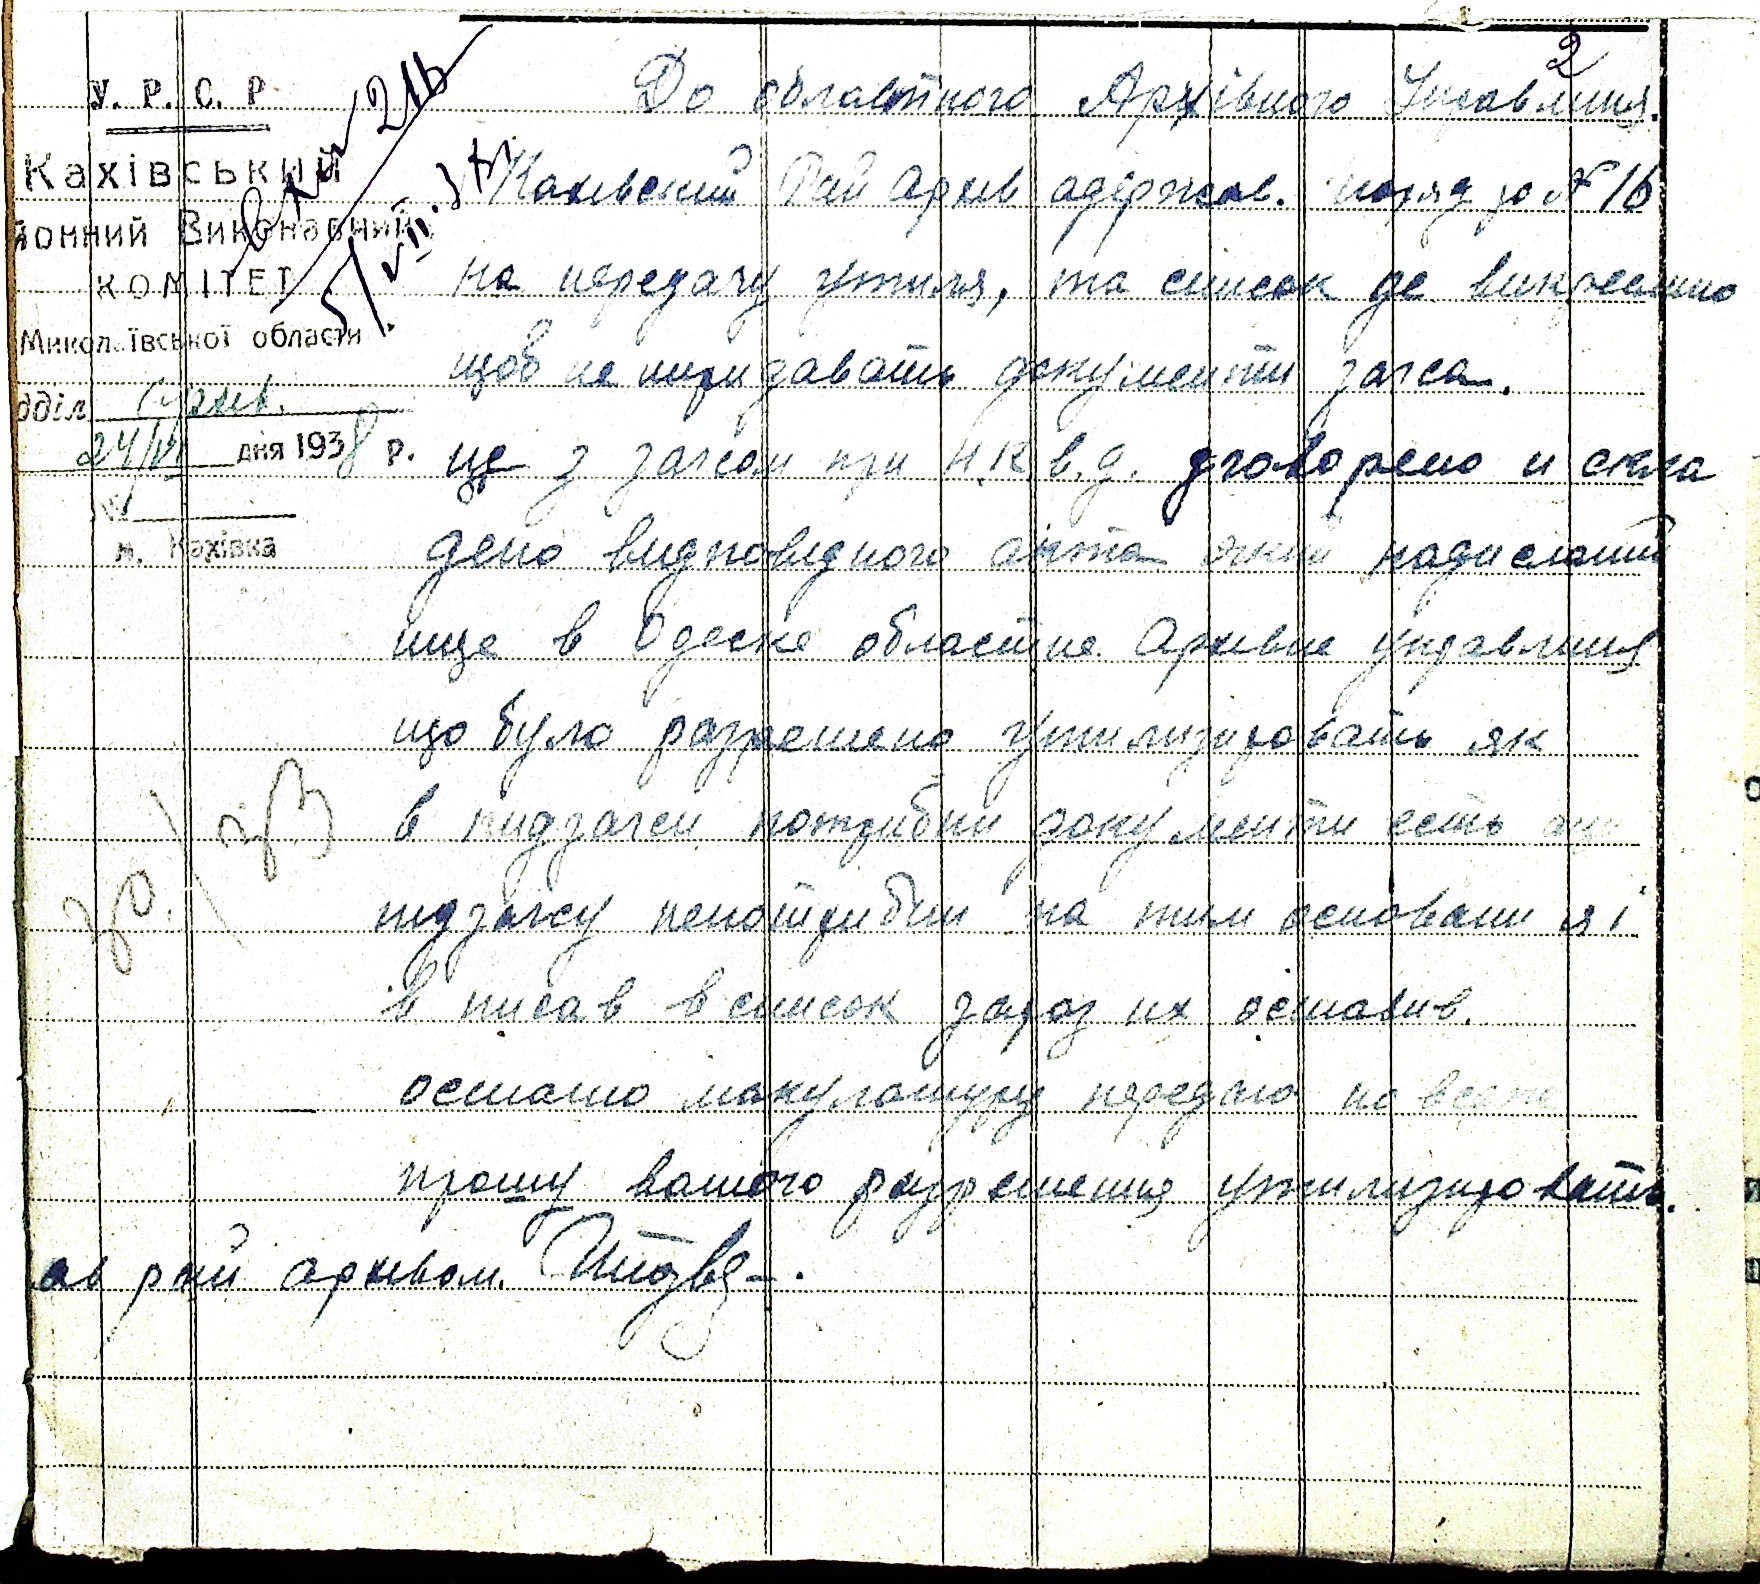 2
У. Р. С. Р
Кахівський
йонний Виконавчий
КОМІТЕТ
Миколаївської области
дділ Архив.
24/VII дня 1938 р.
№
м. Кахівка
216
5/VIII.38
До областного Архівного Управлиня.
Кахівский Рай Архив одержав. наряд за № 16
на передачу утиля, та список де викреслино
щоб не пиридавать документи загса.
це з загсом при Н.К.В.Д. дговорено и скла
дено видповидного акта який надисланий
ище в Одеске областне Архивне управлиня
що було разрешено утилизировать як
в пидзагси потрибни документи есть
пидзагсу непотрибни на тим основани я і
в писав в список зараз их оставив.
осташо макулатуру передаю
прошу вашого разрешения утилизировать.
ав рай архивом.